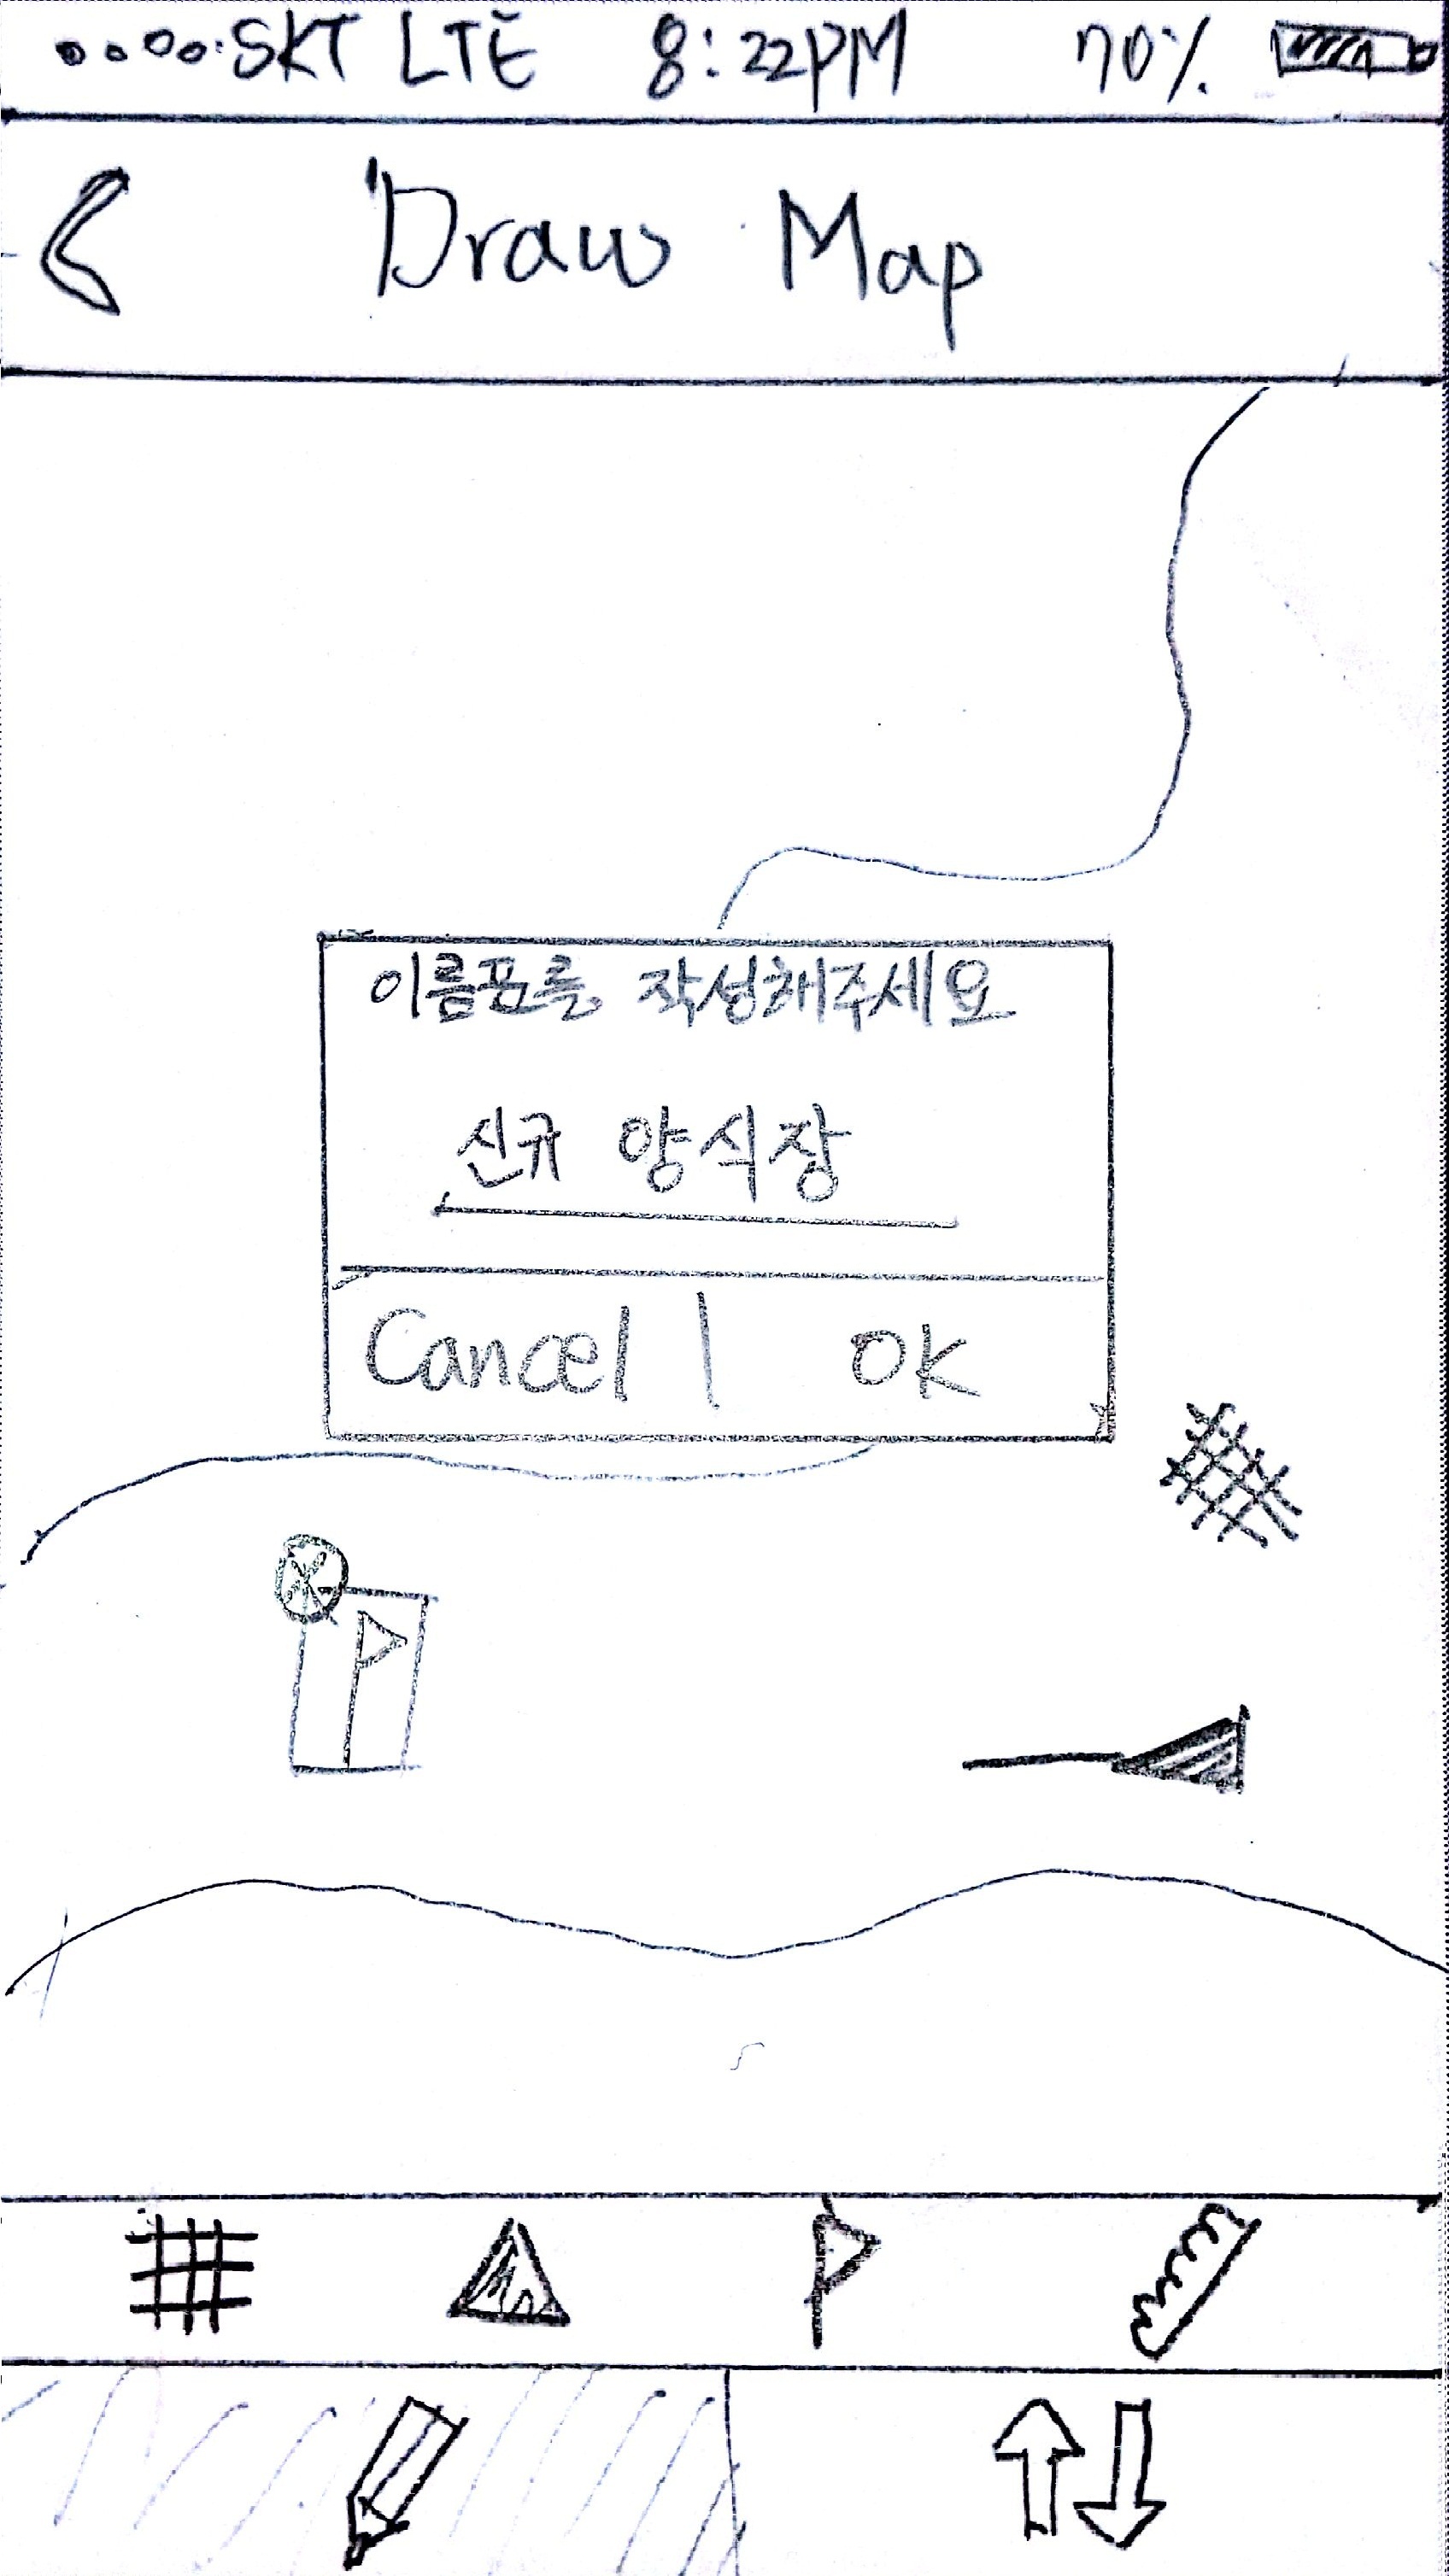 SKT LTE 8:22PM 70%
Draw Map
이름표를 작성해주세요
신규 양식장
Cancel | OK